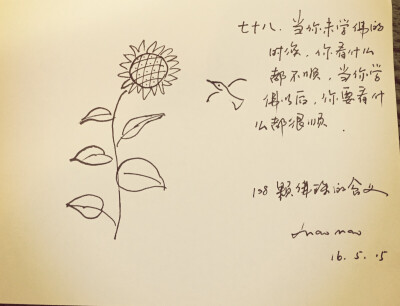 七十八．当你未学佛的
时候，你看什么
都不顺．当你学
佛以后，你要看什
么都很顺．
108颗佛珠的含义
maomao
16.5.15